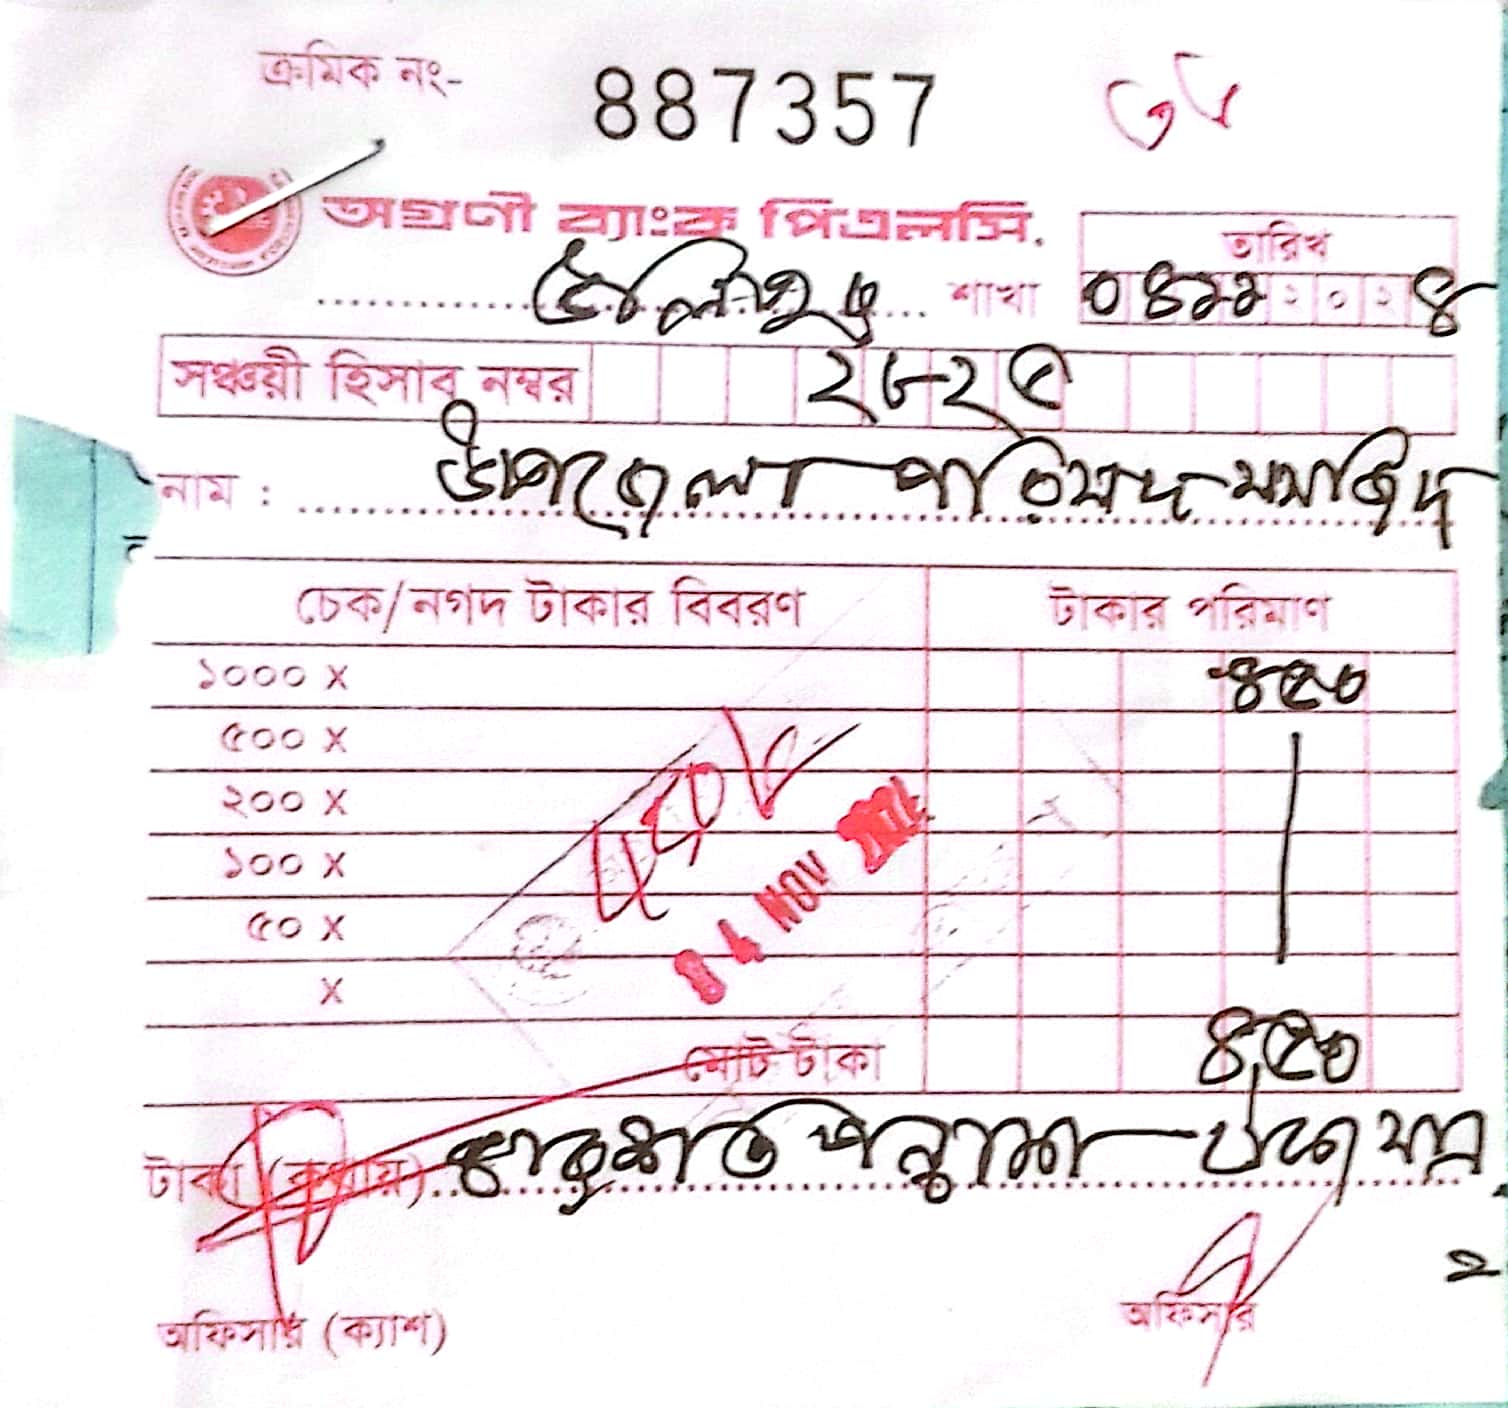 ক্রমিক নং- 887357 ৩৮
অগ্রণী ব্যাংক পিএলসি.
শাখা
তারিখ
০৪১১২০২৪
সঞ্চয়ী হিসাব নম্বর ২৮২৫
নাম : উপজেলা পরিষদ মসজিদ
চেক/নগদ টাকার বিবরণ টাকার পরিমাণ
১০০০ x ৪৫০
৫০০ x
২০০ x
১০০ x
৫০ x
x
450/
04 NOV 2024
মোট টাকা ৪৫০
টাকা (কথায়) চারশত পঞ্চাশ টাকা মাত্র
অফিসার (ক্যাশ) অফিসার